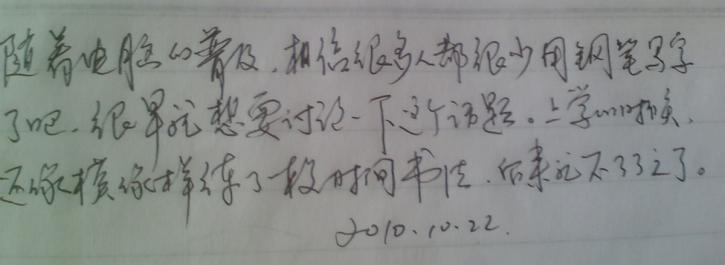 随着电脑的普及，相信很多人都很少用钢笔写字
了吧。很早就想要讨论一下这个话题。上学的时候，
还像模像样练了一段时间书法，后来就不了了之了。
2010.10.22.